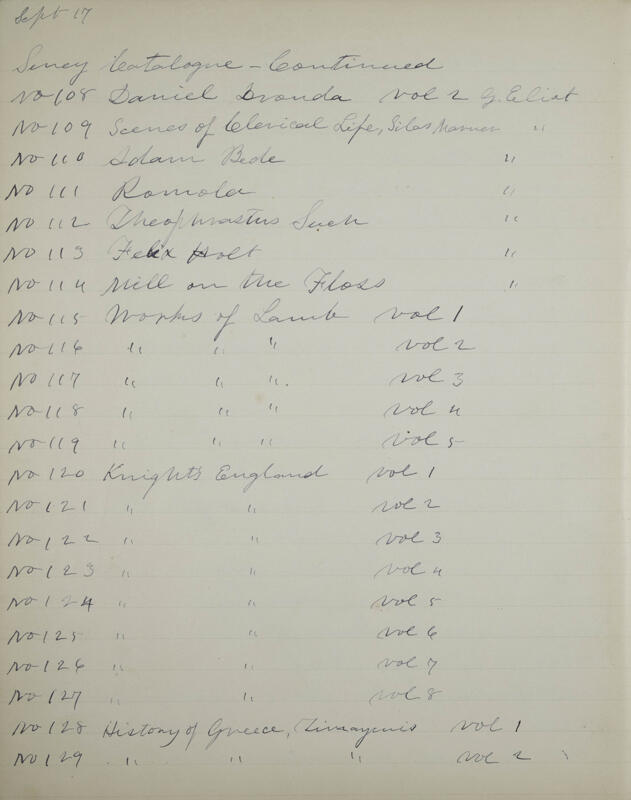 Sept 17
Seney Catalogue - Continued
No 108 Daniel Dronda vol 2 G. Eliot
No 109 Scenes of Clerical Life, Silas Marner "
No 110 Adam Bede "
No 111 Romola "
No 112 Theophrastus Such "
No 113 Felix Holt "
No 114 Mill on the Floss "
No 115 Works of Lamb vol 1
No 116 " " " vol 2
No 117 " " " vol 3
No 118 " " " vol 4
No 119 " " " vol 5
No 120 Knight's England vol 1
No 121 " " vol 2
No 122 " " vol 3
No 123 " " vol 4
No 124 " " vol 5
No 125 " " vol 6
No 126 " " vol 7
No 127 " " vol 8
No 128 History of Greece, Timayenis vol 1
No 129 " " " vol 2